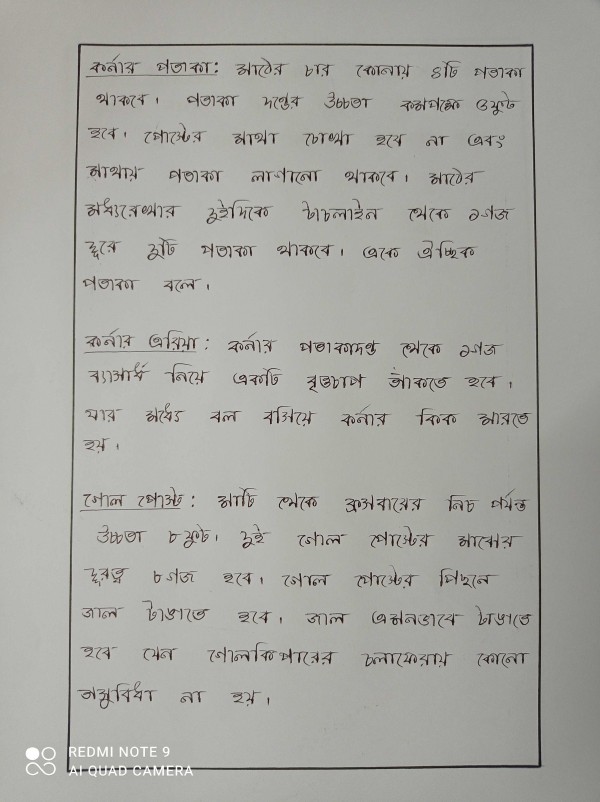 কর্নার পতাকা: মাঠের চার কোনায় ৪টি পতাকা
থাকবে। পতাকা দণ্ডের উচ্চতা কমপক্ষে ৫ফুট
হবে। পোস্টের মাথা চোখা হবে না এবং
মাথায় পতাকা লাগানো থাকবে। মাঠের
মধ্যরেখার দুইদিকে টাচলাইন থেকে ১গজ
দূরে দুটি পতাকা থাকবে। একে ঐচ্ছিক
পতাকা বলে।
কর্নার এরিয়া: কর্নার পতাকাদণ্ড থেকে ১গজ
ব্যাসার্ধ নিয়ে একটি বৃত্তচাপ আঁকতে হবে।
যার মধ্যে বল বসিয়ে কর্নার কিক মারতে
হয়।
গোল পোস্ট: মাটি থেকে ক্রসবারের নিচ পর্যন্ত
উচ্চতা ৮ফুট। দুই গোল পোস্টের মাঝের
দূরত্ব ৮গজ হবে। গোল পোস্টের পিছনে
জাল টাঙাতে হবে। জাল এমনভাবে টাঙাতে
হবে যেন গোলকিপারের চলাফেরায় কোনো
অসুবিধা না হয়।
REDMI NOTE 9
AI QUAD CAMERA